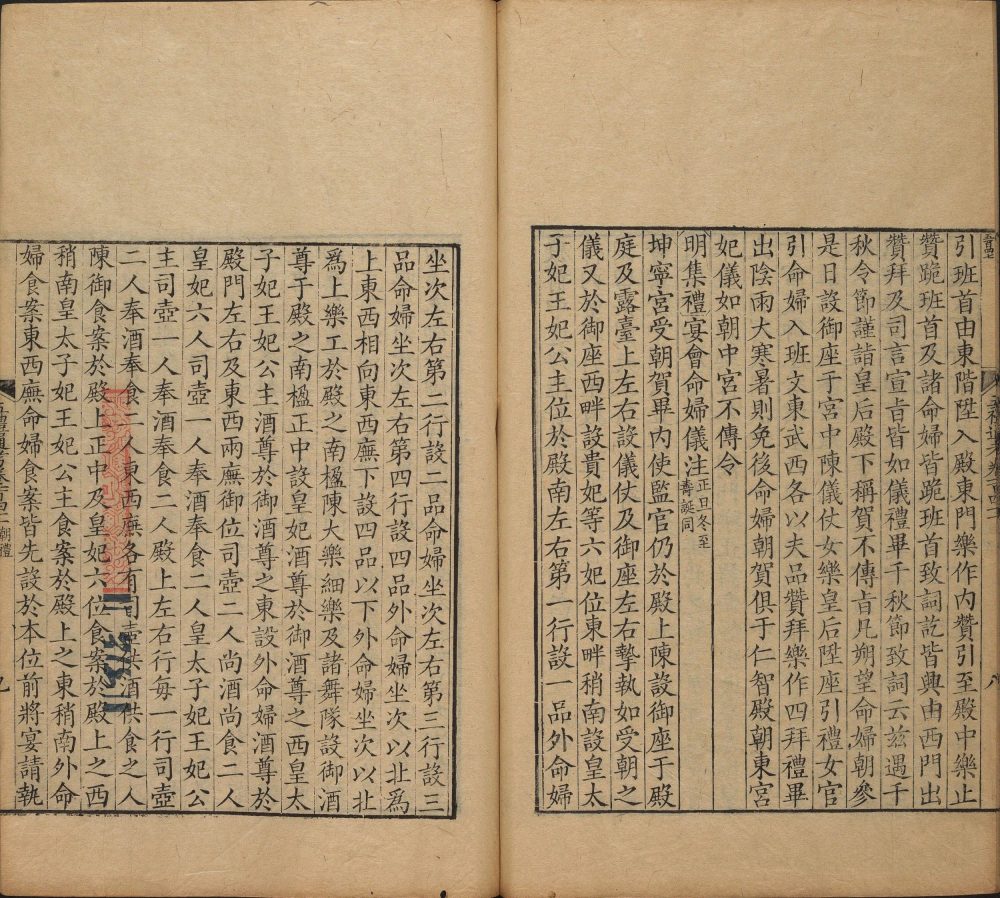 引班首由東階陞入殿東門樂作内贊引至殿中樂止
贊跪班首及諸命婦皆跪班首致詞訖皆興由西門出
贊拜及司言宣旨皆如儀禮畢千秋節致詞云兹遇千
秋令節謹詣皇后殿下稱賀不傳旨凡朔望命婦朝參
是日設御座于宮中陳儀仗女樂皇后陞座引禮女官
引命婦入班文東武西各以夫品贊拜樂作四拜禮畢
出陰雨大寒暑則免後命婦朝賀俱于仁智殿朝東宮
妃儀如朝中宮不傳令
明集禮宴會命婦儀注正旦冬至壽誕同
坤寧宮受朝賀畢内使監官仍於殿上陳設御座于殿
庭及露臺上左右設儀仗及御座左右擎執如受朝之
儀又於御座西畔設貴妃等六妃位東畔稍南設皇太
子妃王妃公主位於殿南左右第一行設一品外命婦
坐次左右第二行設二品命婦坐次左右第三行設三
品命婦坐次左右第四行設四品外命婦坐次以北爲
上東西相向東西廡下設四品以下外命婦坐次以北
爲上樂工於殿之南楹陳大樂細樂及諸舞隊設御酒
尊于殿之南楹正中設皇妃酒尊於御酒尊之西皇太
子妃王妃公主酒尊於御酒尊之東設外命婦酒尊於
殿門左右及東西兩廡御位司壺二人尚酒尚食二人
皇妃六人司壺一人奉酒奉食二人皇太子妃王妃公
主司壺一人奉酒奉食二人殿上左右行每一行司壺
二人奉酒奉食二人東西廡各有司壺供酒供食之人
陳御食案於殿上正中及皇妃六位食案於殿上之西
稍南皇太子妃王妃公主食案於殿上之東稍南外命
婦食案東西廡命婦食案皆先設於本位前將宴請執
朝禮
九